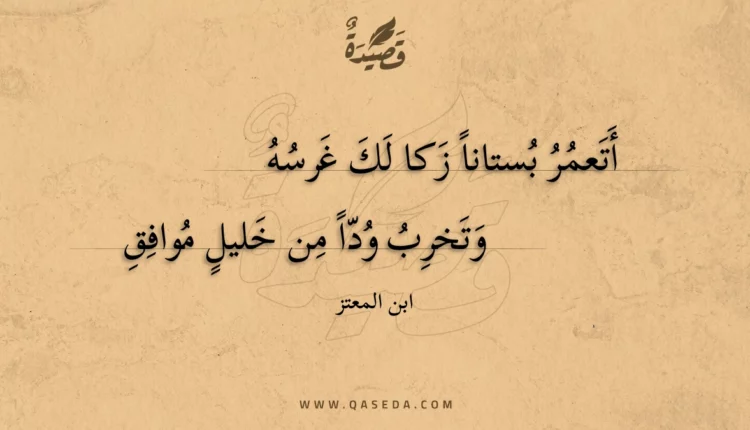 قَصِيْدَةٌ
أَتَعمُرُ بُستاناً زَكا لَكَ غَرسُهُ
وَتَخرِبُ وُدّاً مِن خَليلٍ مُوافِقِ
ابن المعتز
WWW.QASEDA.COM